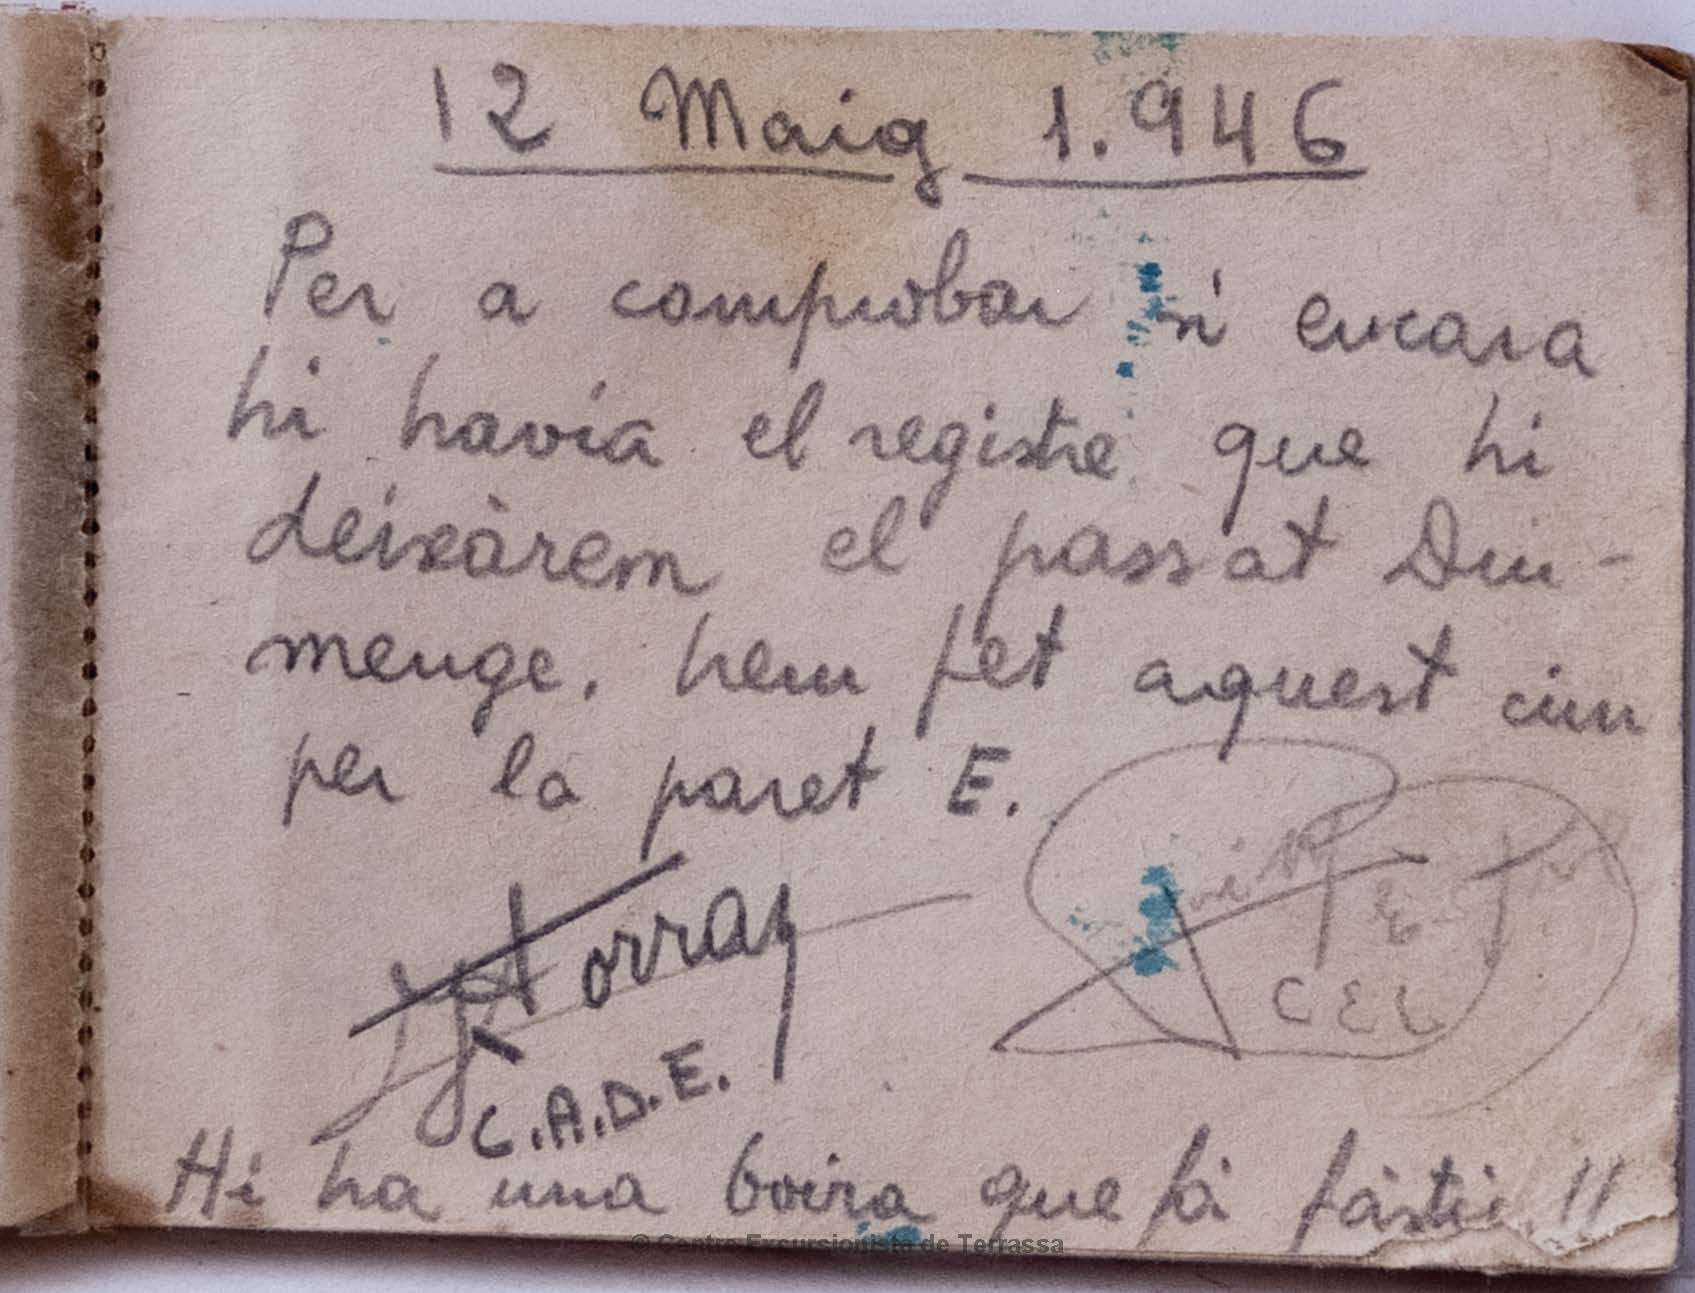 12 Maig 1.946
Per a comprobar si encara
hi havía el registre que hi
deixàrem el passat Diu-
menge, hem fet aquest cim
per la paret E.
Torras
C.A.D.E.
C E L
Hi ha una boira que fà fàstic !!
© Centre Excursionista de Terrassa